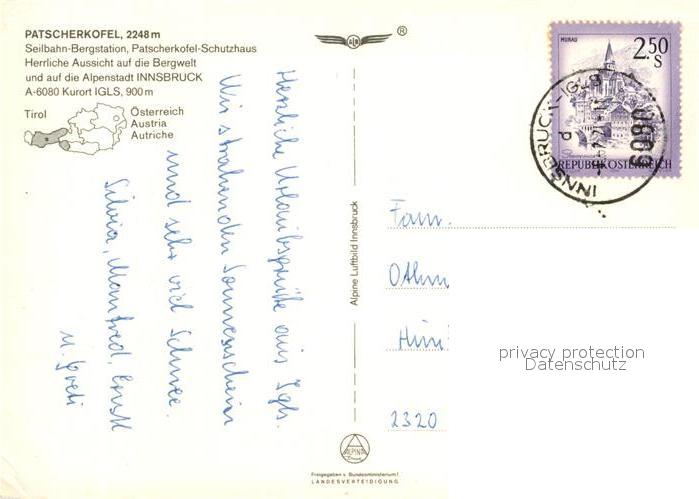 PATSCHERKOFEL, 2248 m
Seilbahn-Bergstation, Patscherkofel-Schutzhaus
Herrliche Aussicht auf die Bergwelt
und auf die Alpenstadt INNSBRUCK
A-6080 Kurort IGLS, 900 m
Tirol
Österreich
Austria
Autriche
Herzliche Urlaubsgrüße aus Igls.
Wir strahlenden Sonnenschein
und sehr viel Schnee.
Silvia, Manfred, Ernst
u. Greti
Alpine Luftbild Innsbruck
ALPINE
Freigegeben v. Bundesministerium f.
LANDESVERTEIDIGUNG
®
MURAU
2.50
S
REPUBLIK ÖSTERREICH
INNSBRUCK-IGLS
6080
Fam.
Othm
2320
privacy protection
Datenschutz